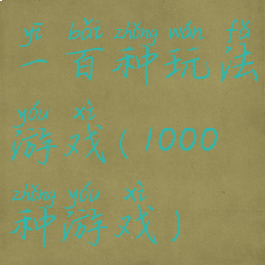 yī bǎi zhǒng wán fǎ
一百种玩法
yóu xì
游戏(1000
zhǒng yóu xì
种游戏)